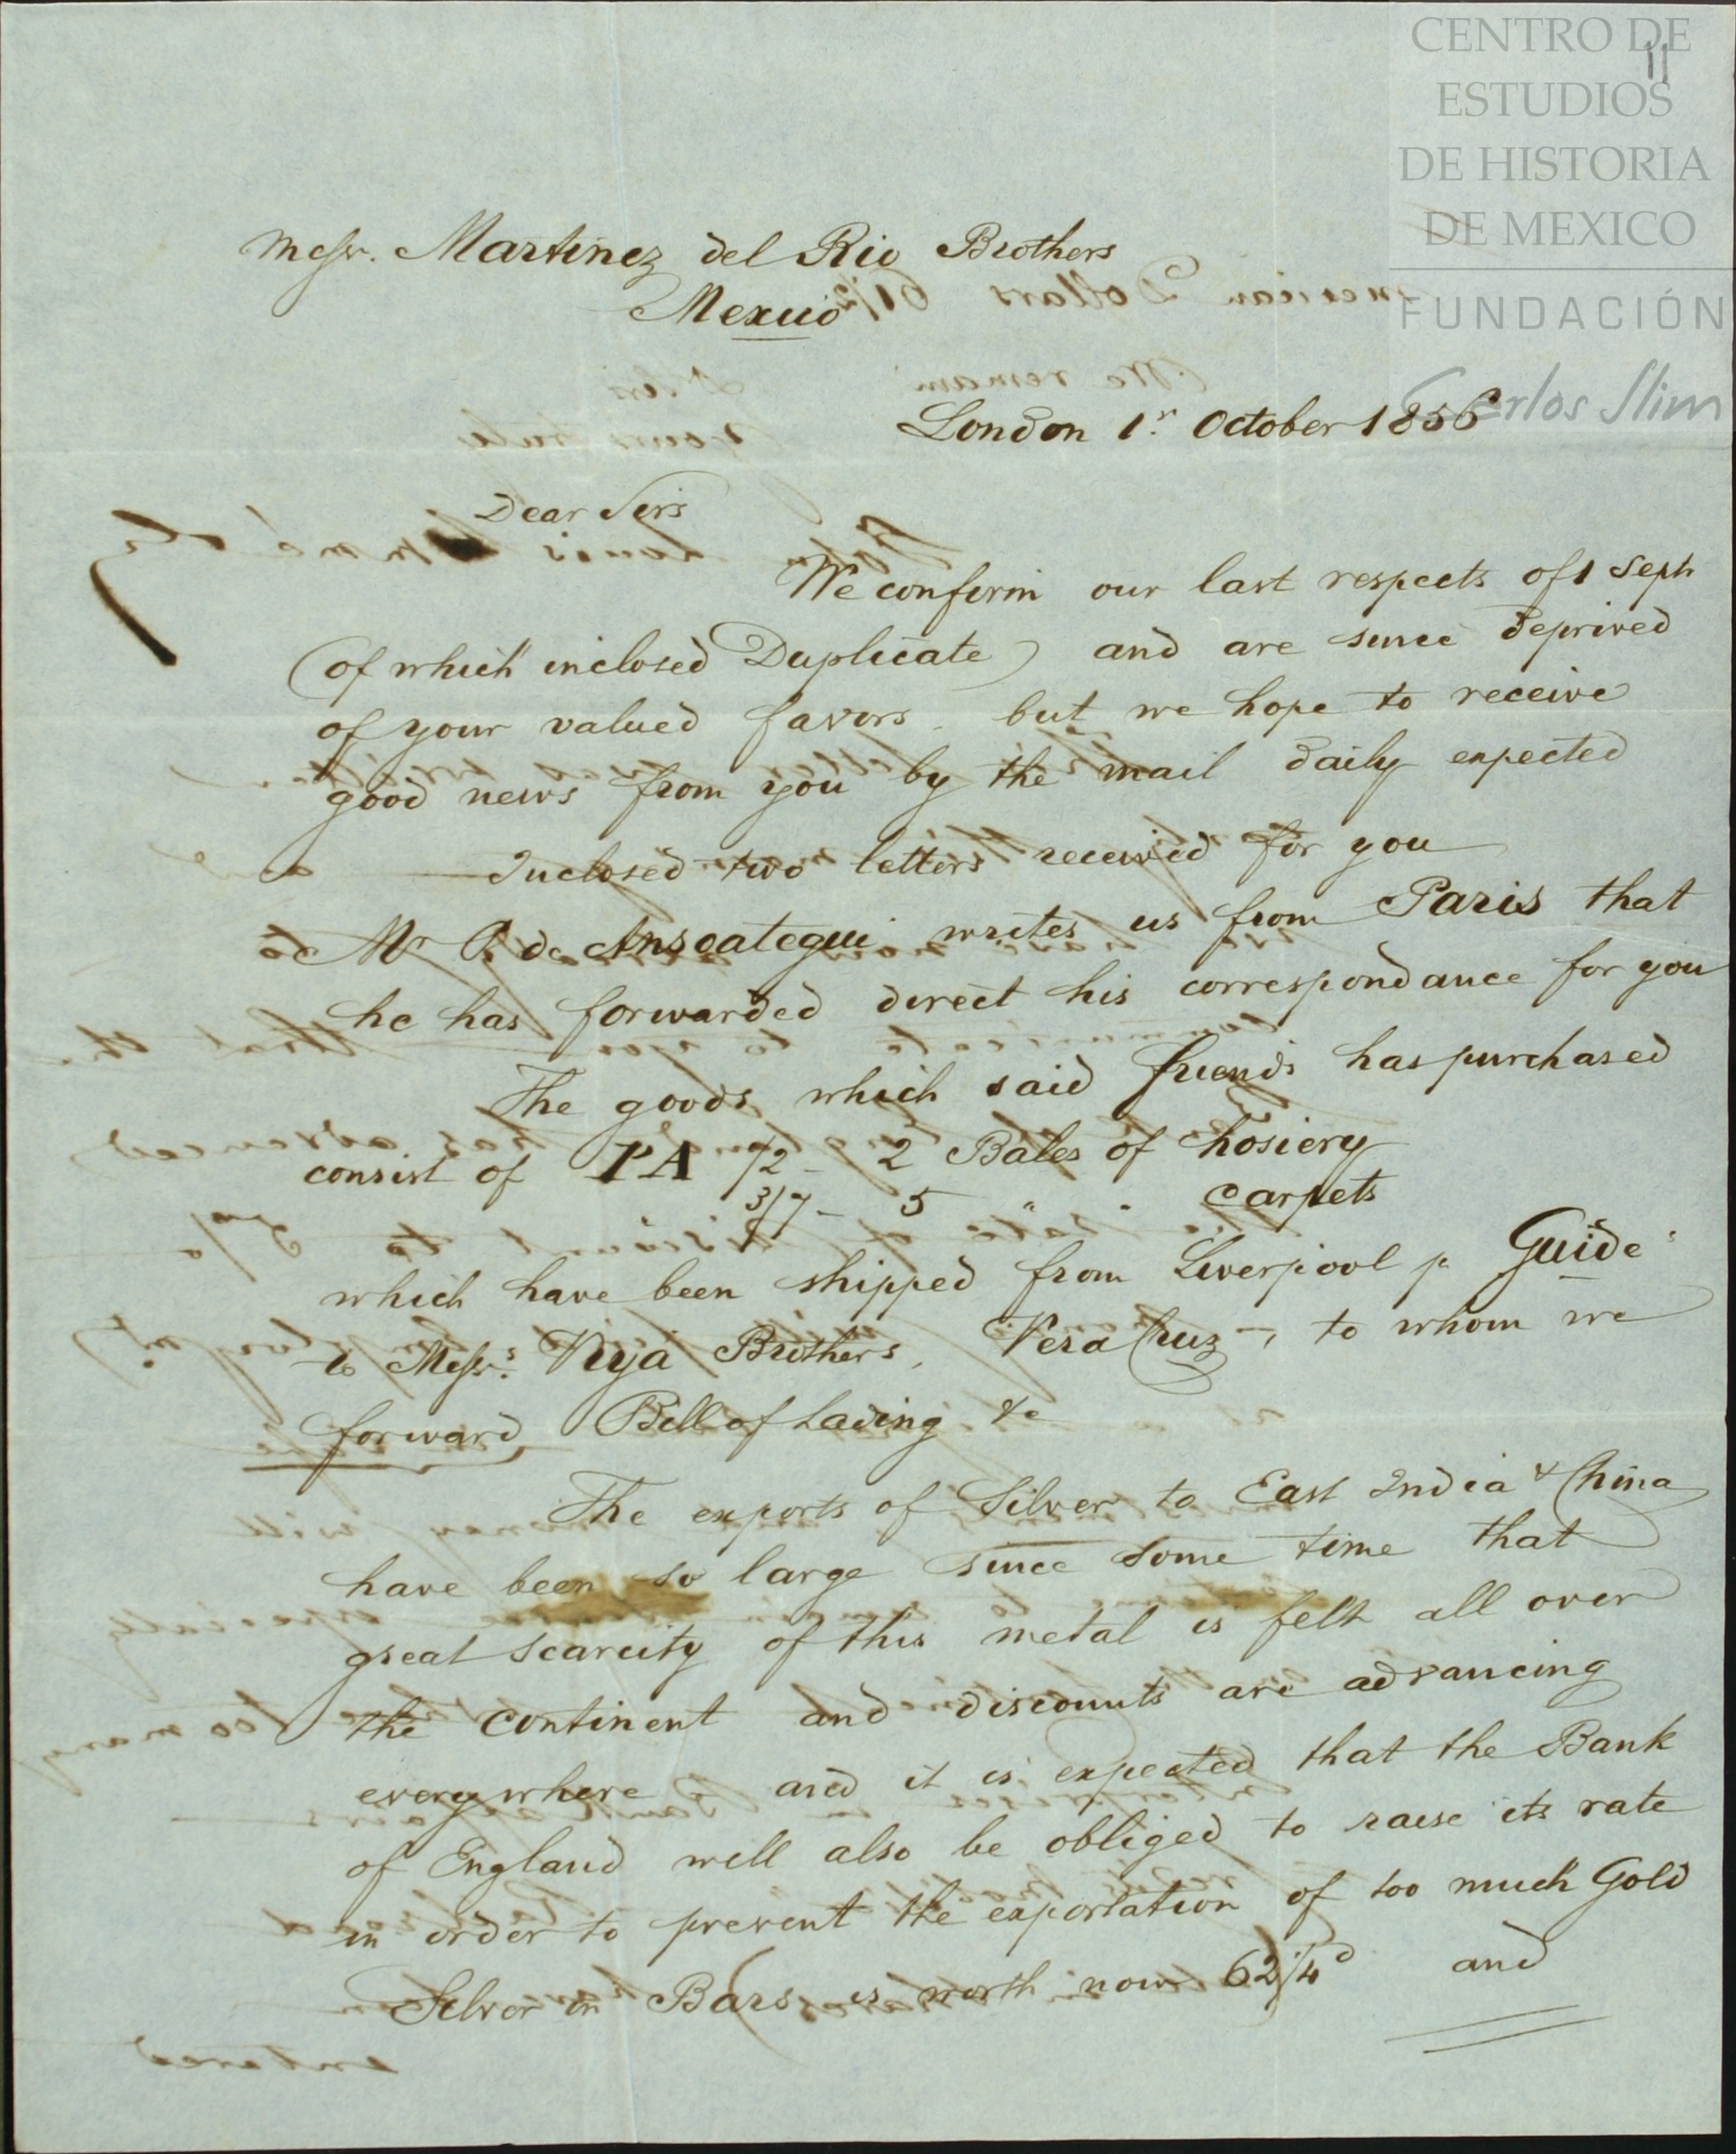 CENTRO DE
ESTUDIOS
DE HISTORIA
DE MEXICO
FUNDACIÓN
Carlos Slim
11
Messr. Martinez del Rio Brothers
Mexico
London 1r October 1856
Dear Sirs
We confirm our last respects of 1 Sept
(of which inclosed Duplicate) and are since deprived
of your valued favors - but we hope to receive
good news from you by the mail daily expected
Inclosed two letters received for you
Mr P. de Ansoategui writes us from Paris that
he has forwarded direct his correspondance for you
The goods which said friends has purchased
consist of PA 1/2 - 2 Bales of hosiery
3/7 - 5 " " carpets
which have been shipped from Liverpool p. Guide
to Messrs. Viya Brothers, Vera Cruz -, to whom we
forward Bill of Lading &c
The exports of Silver to East India & China
have been so large since some time that
great scarcity of this metal is felt all over
the continent and discounts are advancing
everywhere and it is expected that the Bank
of England will also be obliged to raise its rate
in order to prevent the exportation of too much Gold
Silver in Bars is worth now 62 1/4 d and